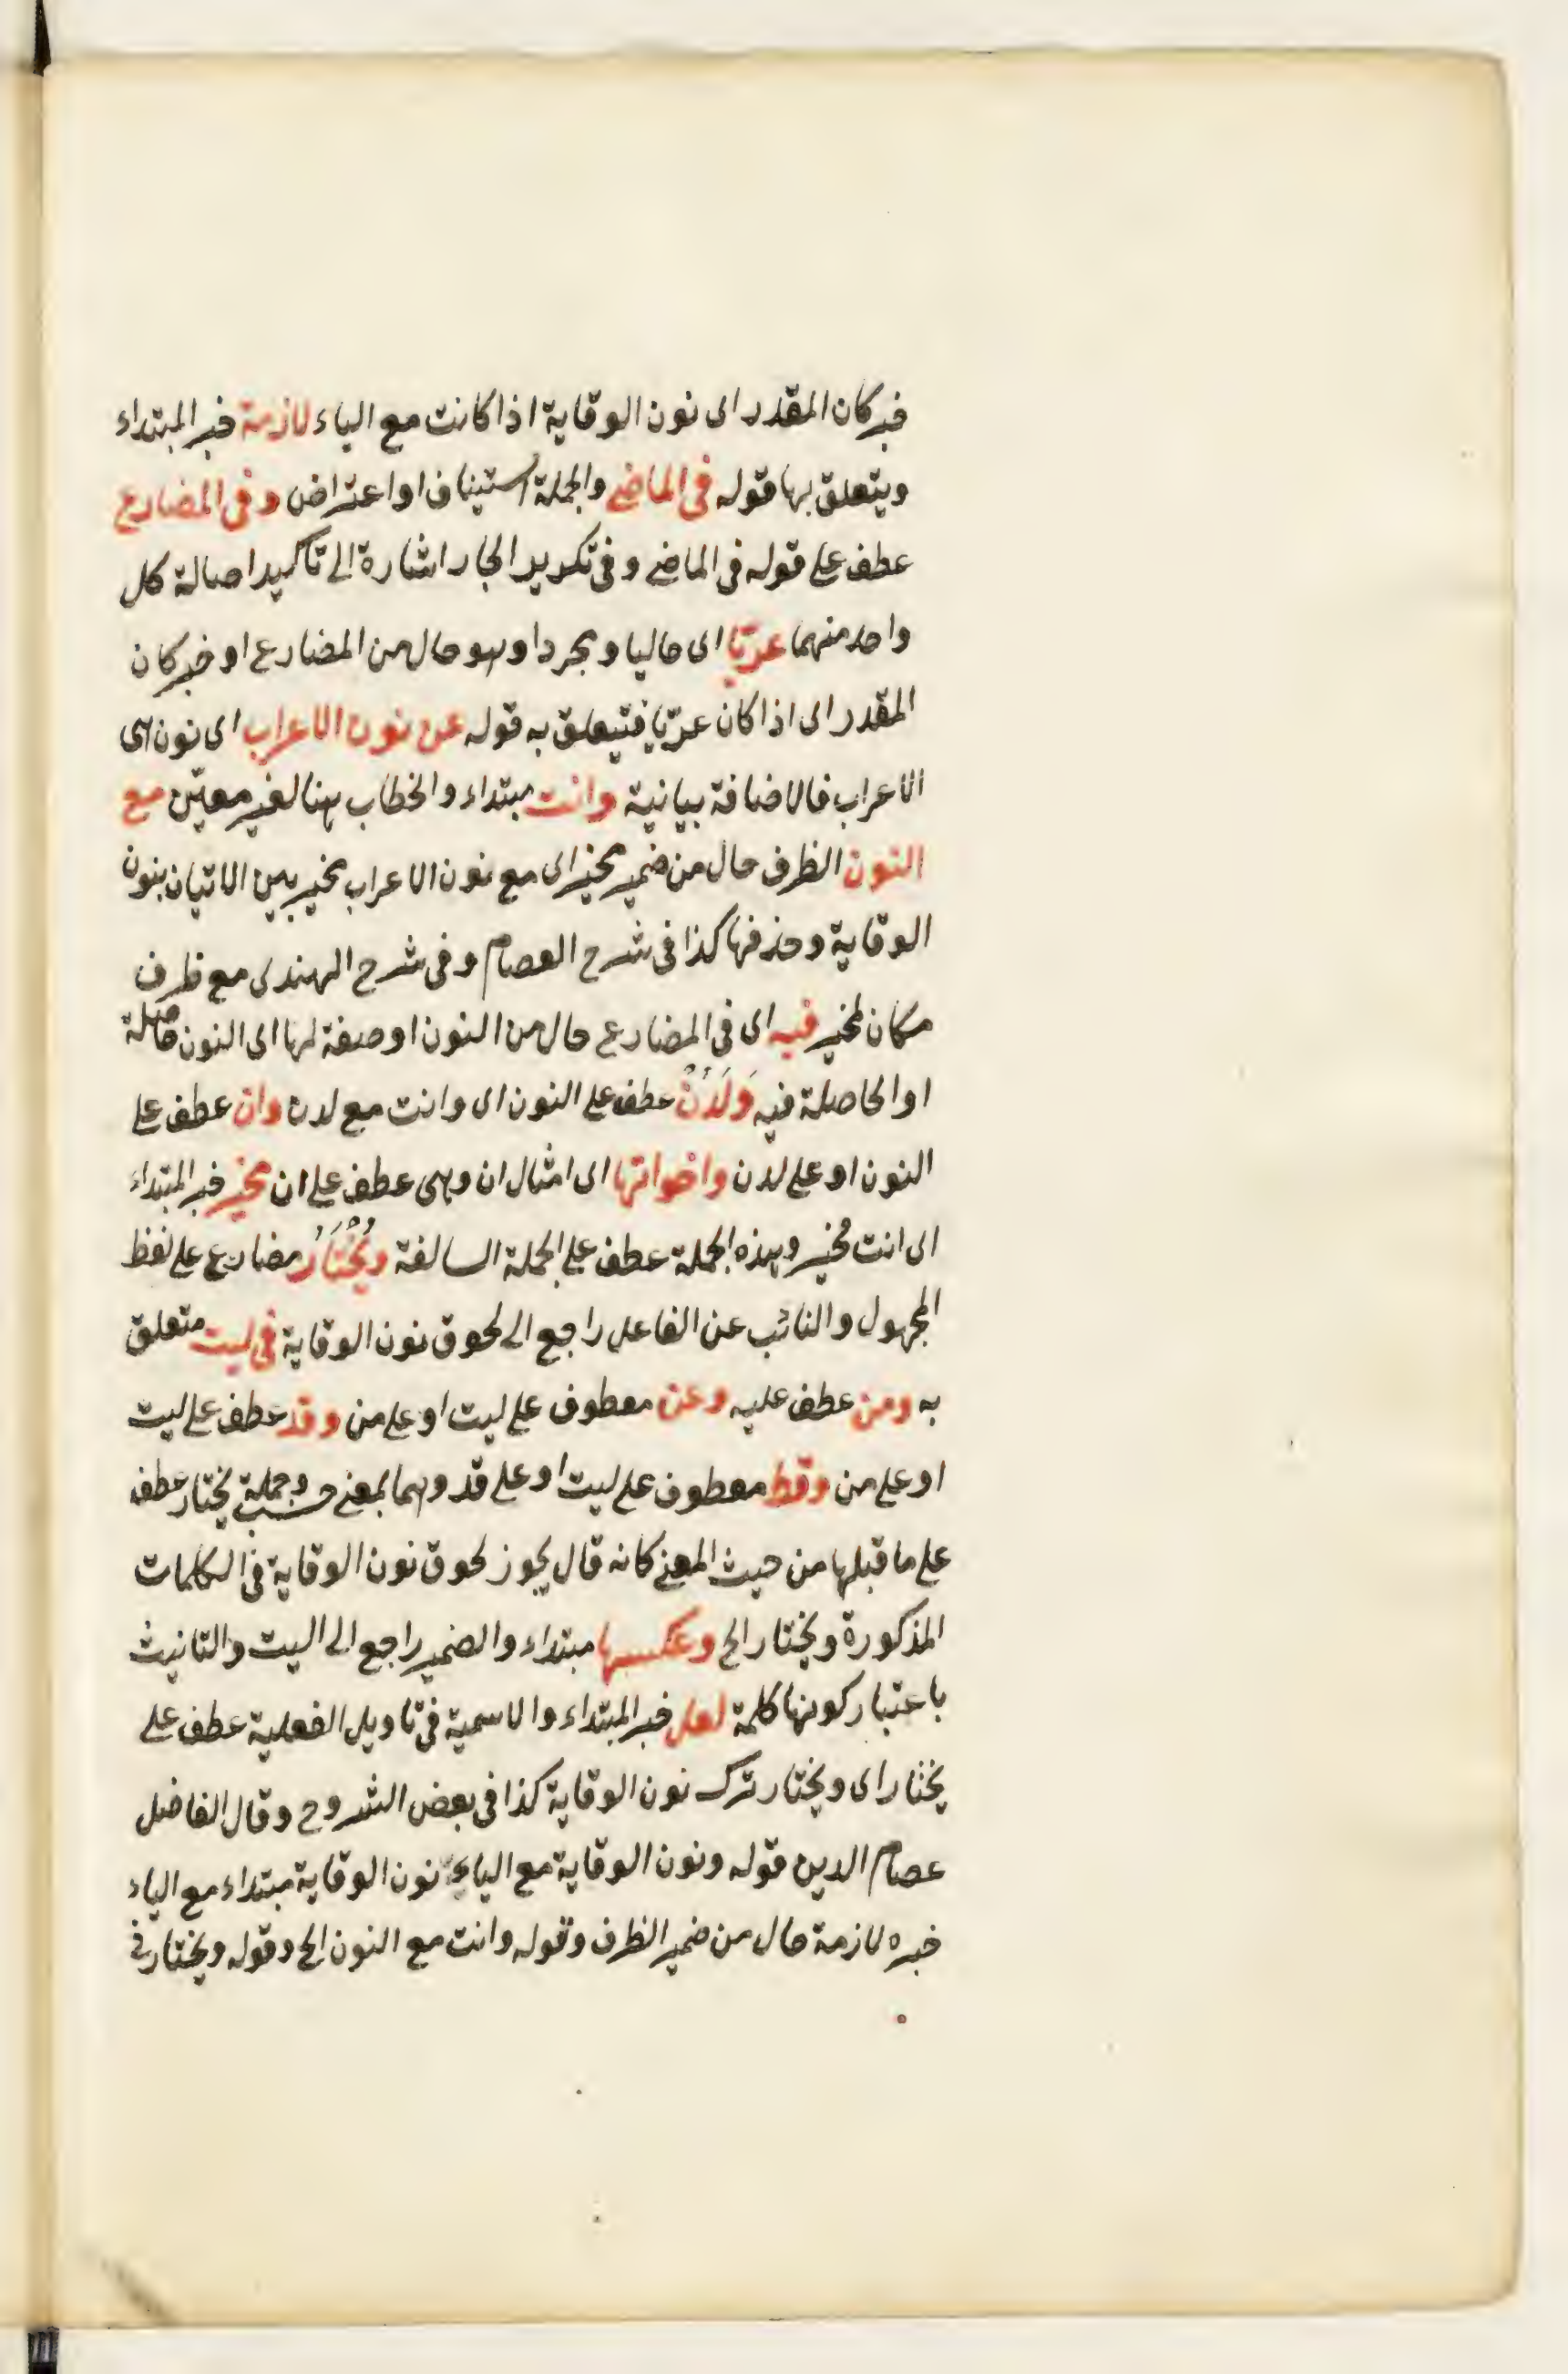 خبر كان المقدر اى نون الوقاية اذا كانت مع الياء لازمة خبر المبتداء
ويتعلق بها قوله فى الماضى والجملة استيناف او اعتراض وفى المضارع
عطف على قوله فى الماضى وفى تكرير الجار اشارة الى تأكيد اصالة كل
واحد منهما عريّا اى خاليا ومجردا وهو حال من المضارع او خبر كان
المقدر اى اذا كان عريّا فتيعلق به قوله عن نون الاعراب اى نون هى
الاعراب فالاضافة بيانية وانت مبتداء والخطاب هنا لغير معيّن مع
النون الظرف حال من ضمير مخير اى مع نون الاعراب مخير بين الاتيان بنون
الوقاية وحذفها كذا فى شرح العصام وفى شرح الهندى مع ظرف
مكان لمخير فيه اى فى المضارع حال من النون او صفة لها اى النون حاصلة
او الحاصلة فيه وَلَدُنْ عطف على النون اى وانت مع لدن وان عطف على
النون او على لدن واخواتها اى امثال ان وهى عطف على ان مخير خبر المبتداء
اى انت مخير وهذه الجملة عطف على الجملة السالفة ويُخْتَارُ مضارع على لفظ
المجهول والنائب عن الفاعل راجع الى لحوق نون الوقاية فى ليت متعلق
به ومن عطف عليه وعن معطوف على ليت او على من وقد عطف على ليت
او على من وقط معطوف على ليت او على قد وهما بمعنى حسب وجملة يختار عطف
على ما قبلها من حيث المعنى كانه قال يجوز لحوق نون الوقاية فى الكلمات
المذكورة ويختار الخ وعكسها مبتداء والضمير راجع الى اليت والتانيث
باعتبار كونها كلمة لعل خبر المبتداء والاسمية فى تاويل الفعلية عطف على
يختار اى ويختار ترك نون الوقاية كذا فى بعض الشروح وقال الفاضل
عصام الدين قوله ونون الوقاية مع الياء نون الوقاية مبتداء مع الياء
خبره لازمة حال من ضمير الظرف وقوله وانت مع النون الخ وقوله ويختار فى